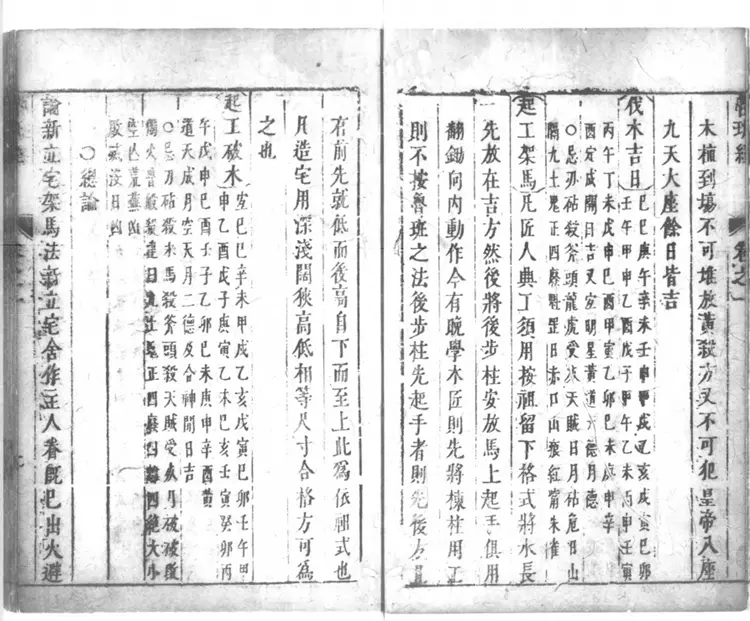 卷之一
木植到塲不可堆放黃殺方又不可犯皇帝八座
九天大座餘日皆吉
伐木吉日 己巳庚午辛未壬申甲戌乙亥戊寅己卯
壬午甲申乙酉戊子甲午乙未丙申壬寅
丙午丁未戊申己酉甲寅乙卯己未庚申辛
酉定成開日吉又宜明星黃道天德月德
○忌刀砧殺斧頭龍虎受死天賊日月砧危日山
隔九土鬼正四廢魁罡日赤口山瘟紅嘴朱雀
起工架馬 凡匠人興工須用按祖留下格式將木長
一先放在吉方然後將後步柱安放馬上起手俱用
翻鋤向內動作今有晚學木匠則先將棟柱用工
則不按魯班之法後步柱先起手者則先後方且
有前先就低而後高自下而至上此為依祖式也
凡造宅用深淺闊狹高低相等尺寸合格方可為
之也
起工破木 宜己巳辛未甲戌乙亥戊寅己卯壬午甲
申乙酉戊子庚寅乙未己亥壬寅癸卯丙
午戊申己酉壬子乙卯己未庚申辛酉黃
道天成月空天月二德及合神開日吉
○忌刀砧殺木馬殺斧頭殺天賊受死月破破敗
獨火魯般殺建日九土鬼正四廢四離四絕大小
空亡荒蕪凶
敗滅沒日凶
○總論
論新立宅架馬法新立宅舍作主人眷既已出火避